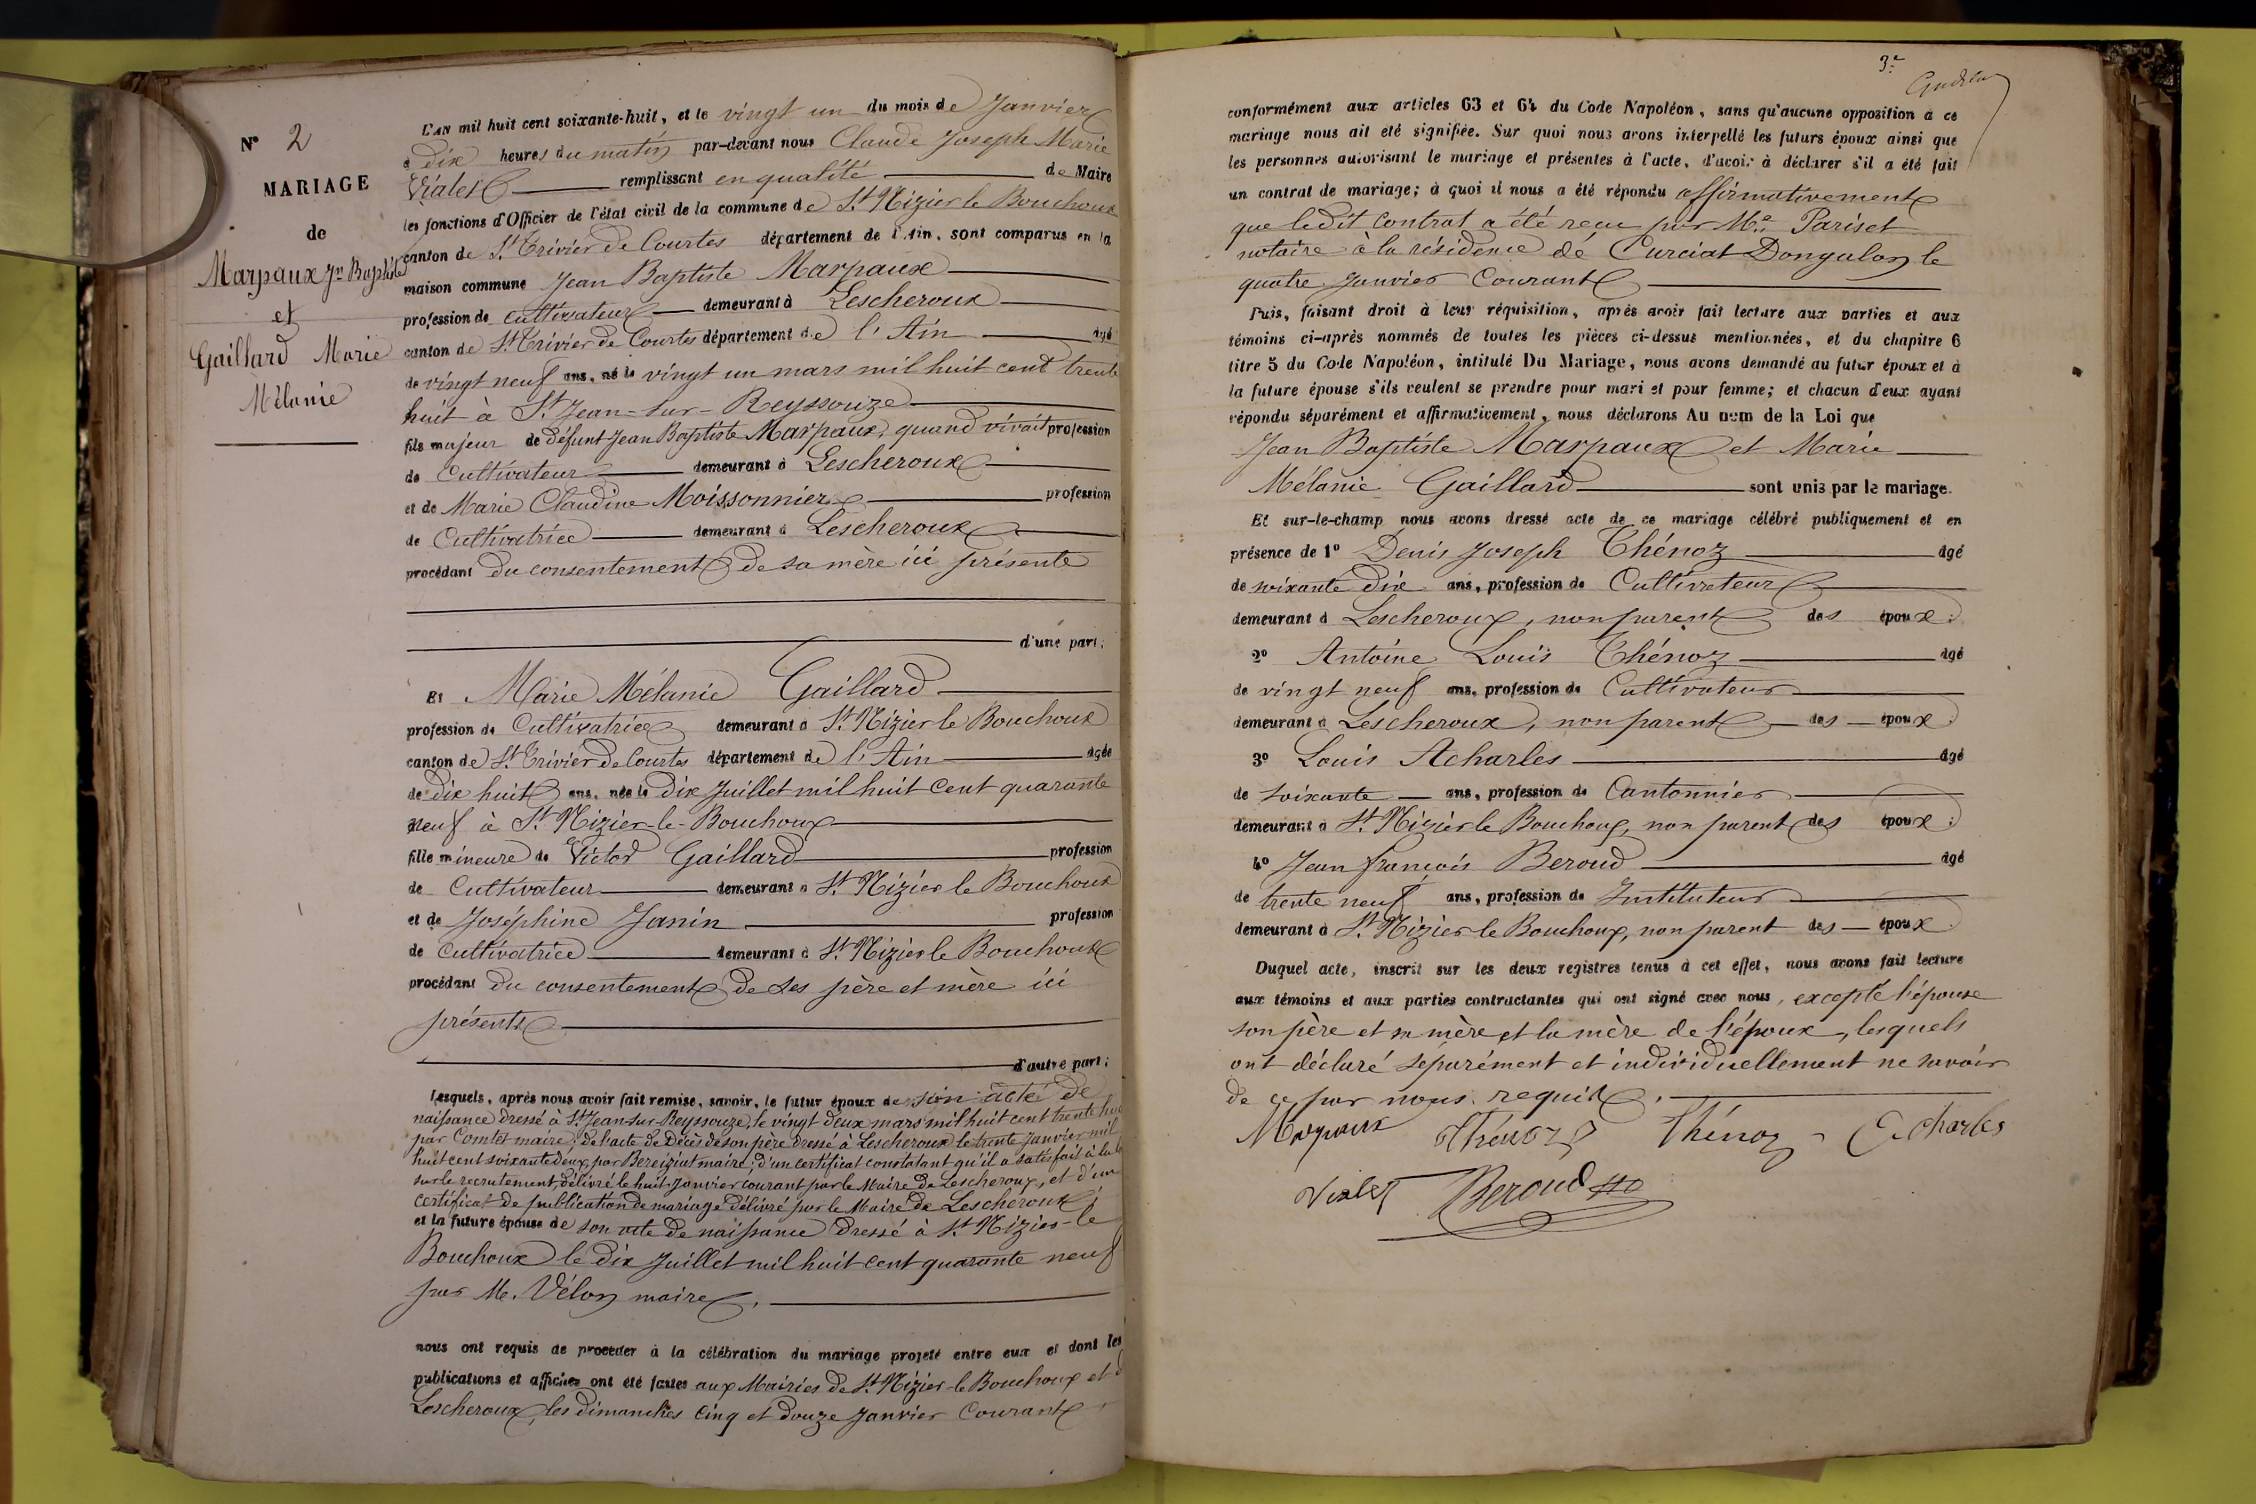 N° 2
MARIAGE
de
Marpaux Jn Baptiste
et
Gaillard Marie
Mélanie
L'AN mil huit cent soixante-huit, et le vingt un du mois de Janvier
à dix heures du matin par-devant nous Claude Joseph Marie
Vialet remplissant en qualité de Maire
les fonctions d'Officier de l'état civil de la commune de St Nizier le Bouchoux
canton de St Trivier de Courtes département de l'Ain, sont comparus en la
maison commune Jean Baptiste Marpaux
profession de cultivateur demeurant à Lescheroux
canton de St Trivier de Courtes département de l'Ain âgé
de vingt neuf ans, né le vingt un mars mil huit cent trente
huit à St Jean-sur-Reyssouze
fils majeur de défunt Jean Baptiste Marpaux, quand vivait profession
de Cultivateur demeurant à Lescheroux
et de Marie Claudine Moissonnier profession
de Cultivatrice demeurant à Lescheroux
procédant du consentement de sa mère ici présente
d'une part;
Et Marie Mélanie Gaillard
profession de Cultivatrice demeurant à St Nizier le Bouchoux
canton de St Trivier de Courtes département de l'Ain âgée
de dix huit ans, née le dix Juillet mil huit cent quarante
neuf à St Nizier-le-Bouchoux
fille mineure de Victor Gaillard profession
de Cultivateur demeurant à St Nizier le Bouchoux
et de Joséphine Janin profession
de Cultivatrice demeurant à St Nizier le Bouchoux
procédant du consentement de ses père et mère ici
présents
d'autre part;
Lesquels, après nous avoir fait remise, savoir, le futur époux de son acte de
naissance dressé à St Jean-sur-Reyssouze, le vingt deux mars mil huit cent trente huit
par Comtet maire, de l'acte de Décès de son père dressé à Lescheroux le trente janvier mil
huit cent soixante deux, par Bereiziat maire; d'un certificat constatant qu'il a satisfait à la loi
sur le recrutement, délivré le huit Janvier courant par le Maire de Lescheroux, et d'un
certificat de publication de mariage délivré par le Maire de Lescheroux;
et la future épouse de son acte de naissance dressé à St Nizier-le
Bouchoux le dix Juillet mil huit cent quarante neuf
par M. Vélon maire.
nous ont requis de procéder à la célébration du mariage projeté entre eux et dont les
publications et affiches ont été faites aux Mairies de St Nizier-le Bouchoux et
Lescheroux, les dimanches cinq et douze Janvier Courant
3e
conformément aux articles 63 et 64 du Code Napoléon, sans qu'aucune opposition à ce
mariage nous ait été signifiée. Sur quoi nous avons interpellé les futurs époux ainsi que
les personnes autorisant le mariage et présentes à l'acte, d'avoir à déclarer s'il a été fait
un contrat de mariage; à quoi il nous a été répondu affirmativement
que ledit Contrat a été reçu par Me Pariset
notaire à la résidence de Curciat Dongalon le
quatre Janvier Courant
Puis, faisant droit à leur réquisition, après avoir fait lecture aux parties et aux
témoins ci-après nommés de toutes les pièces ci-dessus mentionnées, et du chapitre 6
titre 5 du Code Napoléon, intitulé Du Mariage, nous avons demandé au futur époux et à
la future épouse s'ils veulent se prendre pour mari et pour femme; et chacun d'eux ayant
répondu séparément et affirmativement, nous déclarons Au nom de la Loi que
Jean Baptiste Marpaux et Marie
Mélanie Gaillard sont unis par le mariage.
Et sur-le-champ nous avons dressé acte de ce mariage célébré publiquement et en
présence de 1° Denis Joseph Thénoz âgé
de soixante dix ans, profession de Cultivateur
demeurant à Lescheroux, non parent des époux;
2° Antoine Louis Thénoz âgé
de vingt neuf ans, profession de Cultivateur
demeurant à Lescheroux, non parent des époux;
3° Louis Acharles âgé
de soixante ans, profession de Cantonnier
demeurant à St Nizier le Bouchoux, non parent des époux;
4° Jean François Beroud âgé
de trente neuf ans, profession de Instituteur
demeurant à St Nizier le Bouchoux, non parent des époux.
Duquel acte, inscrit sur les deux registres tenus à cet effet, nous avons fait lecture
aux témoins et aux parties contractantes qui ont signé avec nous, excepté l'épouse
son père et sa mère et la mère de l'époux, lesquels
ont déclaré séparément et individuellement ne savoir
de ce par nous requis.
Marpaux Thénoz Thénoz Acharles
Vialet Beroud